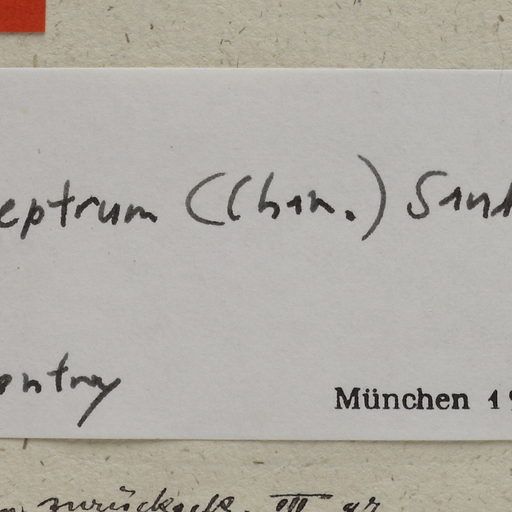 eptrum (Chin.) Sand
entry
München 19
zurückgek. III 47